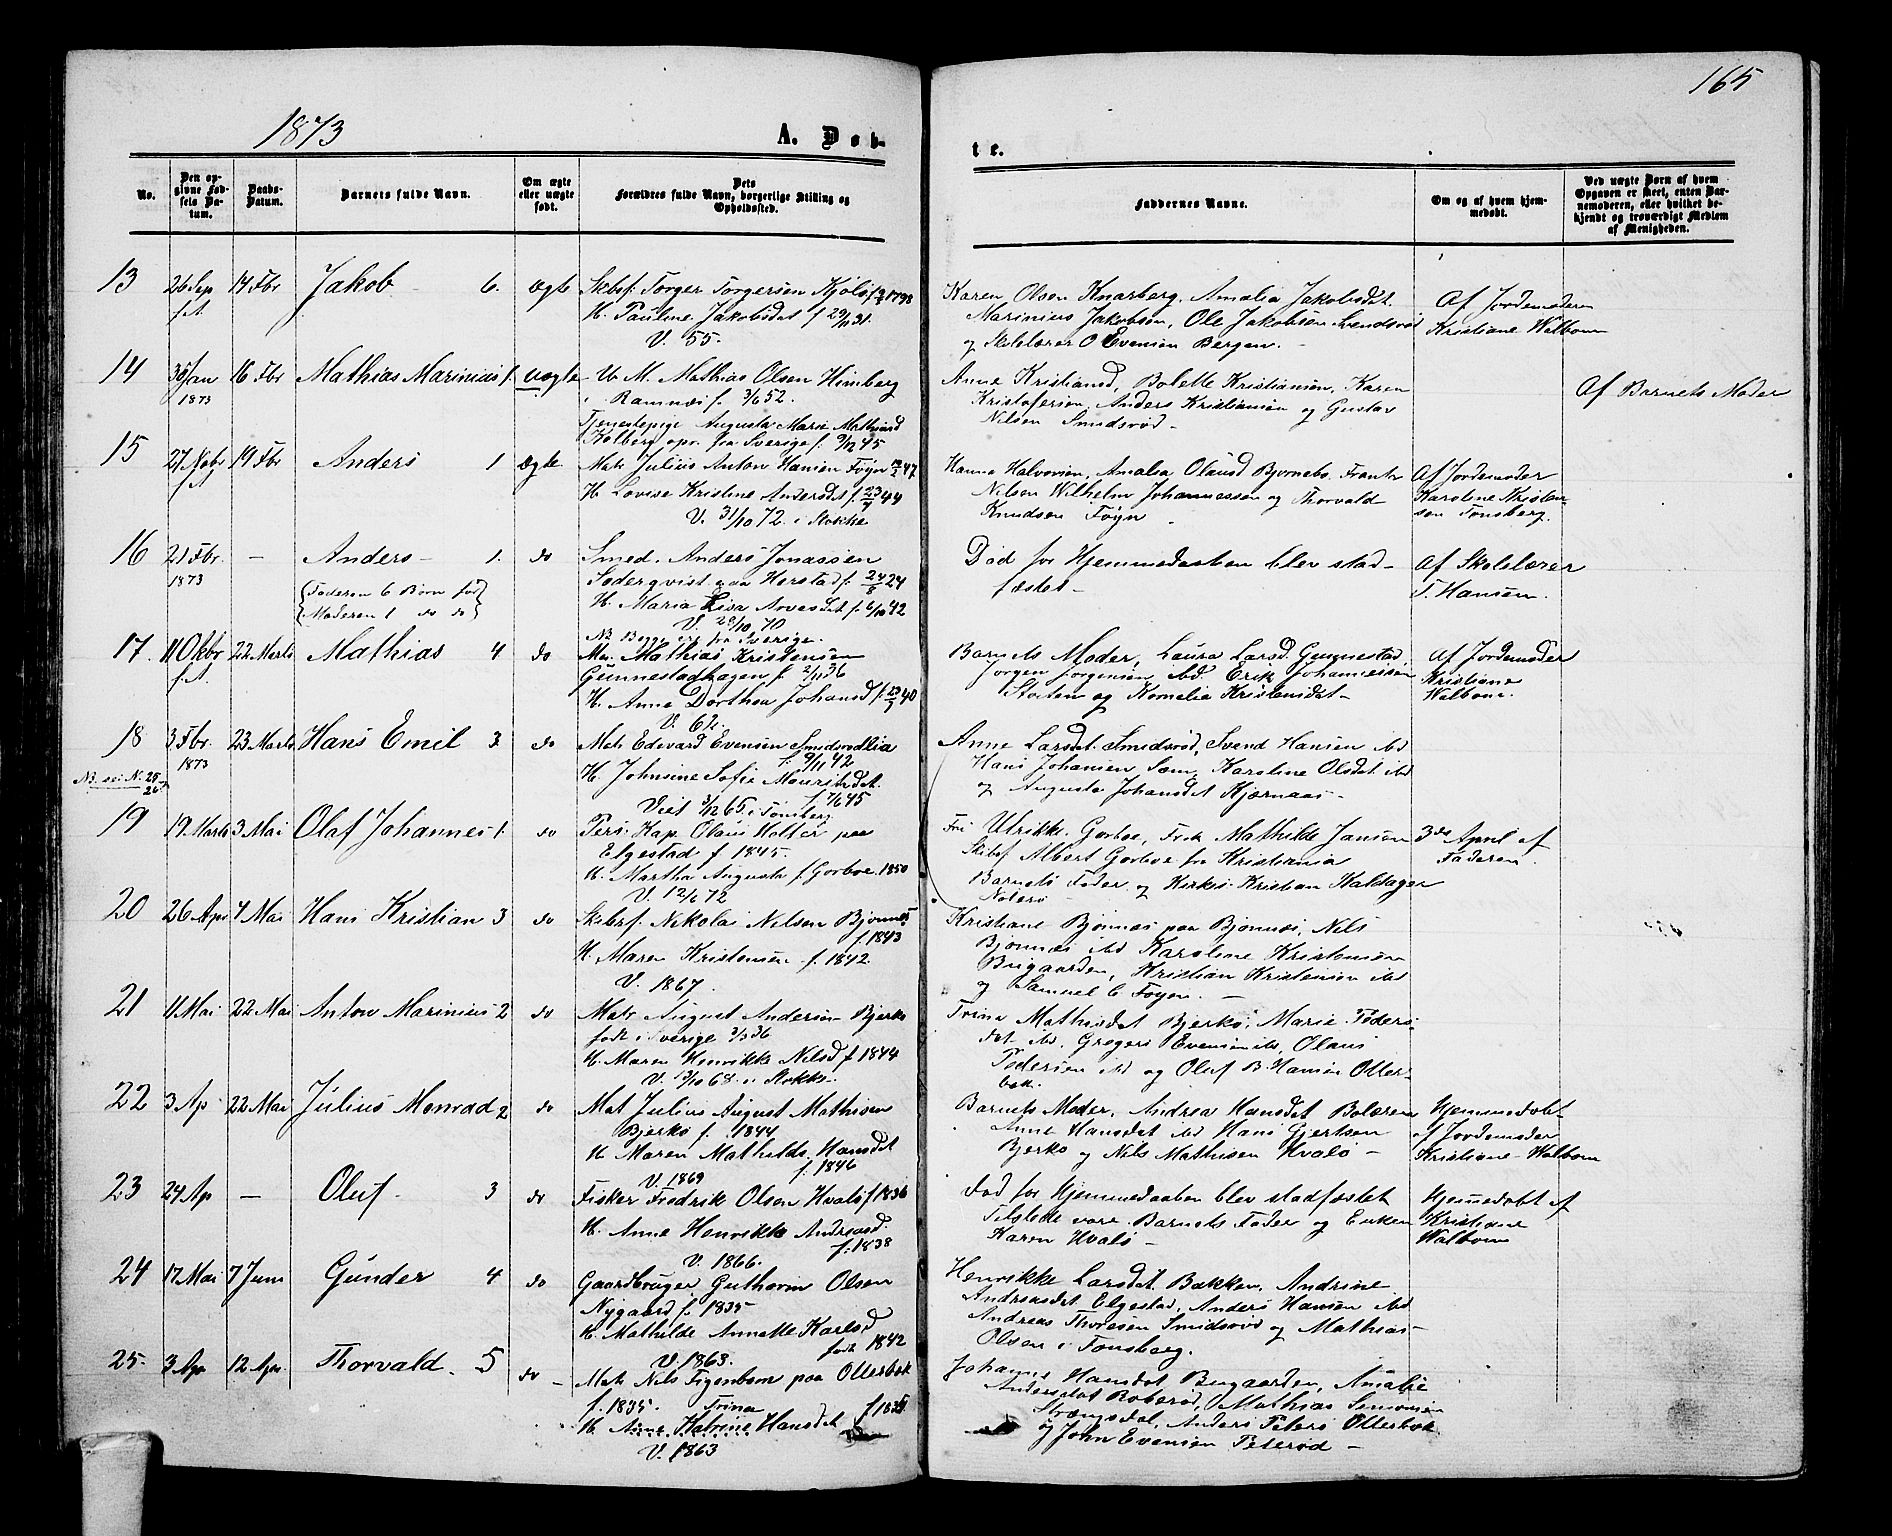 165
1873
A. Døb-
te.
No.
Den op-
givne Fød-
sels Da-
tum.
Daabs-
Datum.
Barnets fulde Navn.
Om ægte
eller uægte
født.
Dets
Forældres fulde Navn, borgerlige Stilling og
Opholdssted.
Faddernes Navne.
Om og af hvem hjem-
medøbt.
Ved uægte Børn af hvem
Opgaven er skeet, enten Bar-
nemoderen, eller hvilket be-
kjendt og troværdigt Medlem
af Menigheden.
13 26 Sep 14 Fbr Jakob 6. ægte
f.A
Skbsf. Torger Torgersen Kjølø
H. Pauline Jakobsdat f 29/11 31.
V. 55.
Karen Olsen Knarberg, Amalia Jakobsdat.
Marinius Jakobsen, Ole Jakobsen Svendsrød
og Skolelærer O Evensen Bergan.
Af Jordemoderen
Kristiane Walbom
14 30 Jan 16 Fbr Mathias Marinius 1. uægte
1873
U. M. Mathias Olsen Himberg
i Ramnæs f. 3/6 52.
Tjenestepige Augusta Marie Mathiasd
Kolberg opr. fra Sverige f. 9/12 45
Anne Kristiansd, Bolette Kristiansen, Karen
Kristofersen, Anders Kristiansen og Gustav
Nilsen Smidsrød.
Af Barnets Moder
15 27 Nobr 19 Fbr Anders 1 ægte
f.A
Matr Julius Anton Hansen Føyn 47
H. Lovise Kristine Andersdat f. 23 44
V. 31/10 72. i Stokke
Hanna Halvorsen, Amalia Olausd Bjornebo, Frantz
Nilsen Wilhelm Johannessen og Thorvald
Knudsen Føyn
Af Jordemoder
Karoline Kristen-
sen Tønsberg.
16 21 Fbr. - Anders - 1. do
1873
(Faderen 6 Børn før)
(Moderen 1 do do)
Smed. Anders Jonassen
Søderqvist paa Herstad f. 24/8 24
H. Maria Lisa Arvesdat f. 6/10 42
V. 29/10 70
NB Begge ere fra Sverige.
Død før Hjemmedaaben blev stad-
fæstet -
Af Skolelærer
T. Hansen.
17. 11 Oktbr 22 Marts Mathias 4 do
f.A
Mathias Kristensen
Gunnestadhagen f. 2/11 36
H. Anne Dorthea Johansd f. 40
V. 62.
Barnets Moder, Laura Larsd Gunnestad,
Jørgen Jørgensen ibd Erik Johannessen
og Kornelia Kristensdat -
Af Jordemoder
Kristiane
Walbom.
18 3 Fbr. 23 Marts Hans Emil 3. do
1873
NB. sei N. 25-
26
Matr Edevard Evensen Smidsrødlia
f. 9/11 42
H. Johnsine Sofie Mauritsdat.
f. 7/6 45
Viet 3/12 65. i Tønsberg
Anne Larsdat. Smidsrød, Svend Hansen ibd
Hans Johansen Sem, Karoline Olsdat ibd
og Augusta Johansdat Kjærnaas -
19 19 Marts 3 Mai Olaf Johannes 1. do
Pers. Kap. Olaus Holter paa
Elgestad f 1845.
H. Martha Augusta f. Gorboe 1850
V. 12/6 72
Fru Ulrikke Gorboe, Frøk Mathilde Jansen
Skibsf Albert Gorboe fra Kristiania
Barnets Fader og Kirkes. Kristian Haldager
Nøterø -
3die April af
Faderen.
20 26 Apr 7 Mai Hans Kristian 3 do
Skibsf. Nikolai Nilsen Bjønnes
f. 1843
H. Maren Kristensen f. 1842.
V. 1867.
Kristiane Bjønnæs paa Bjønnæs, Nils
Bjønnæs ibd Karoline Kristensen
Brigaarden, Kristian Kristensen ibd
og Samuel C. Føyen.
21 11 Mai 22 Mai Anton Marinius 2 do
Matr August Andersen Bjerkø
født i Sverige 2/3 36
H. Maren Henrikke Nilsd f 1844
V. 3/10 68. i Stokke.
Trina Mathisdat Bjerkø, Marie Peders-
dat ibd, Gregers Evensen ibd, Olaus
Pedersen ibd og Oluf B. Hansen Otter-
bæk.
22 3 Ap 22 Mai Julius Monrad 2 do
Mat Julius August Mathisen
Bjerkø f. 1844
H. Maren Mathilde Hansdat
f. 1846
V. 1869
Barnets Moder, Andrea Hansdat Bolærene
Anne Hansdat ibd Hans Gjertsen
Bjerkø og Nils Mathisen Hvalø -
Hjemmedøbt
af Jordemoder
Kristiane Walbom
23 24 Ap - Oluf. 3 do
Fisker Fredrik Olsen Hvalø f 1836
H. Anne Henrikke Andreasd.
f. 1838
V. 1866.
Død før Hjemmedaaben blev stadfæstet
Tilstede vare Barnets Fader og Enken
Karen Hvalø -
Hjemmedøbt af
Kristiane
Walbom
24 17 Mai 7 Juni Gunder 4 do
Gaardbruger Guthorm Olsen
Nygaard f. 1835
H. Mathilde Annette Karlsd
født 1842
V. 1863.
Henrikke Larsdat. Bakken, Andrine
Andreasdat Elgestad, Anders Hansen ibd
Andreas Thoresen Smidsrød og Mathias
Olsen i Tønsberg.
25. 3 Ap 12 Apr. Thorvald. 5 do
Matr Nils Figenbom paa Otterbæk
f. 1835. Trina
H. Anne Katrine Hansdat f 1835
V. 1863
Johanne Hansdat Brigaarden, Amalie
Andersdat Roberød, Mathias Simonsen
Strængsdal, Anders Peters Otterbæk
og John Evensen Peterød -